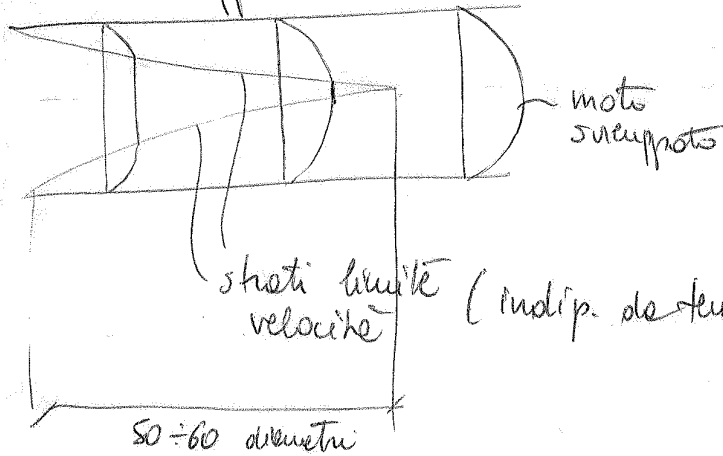 moto
sviluppato
strati limite
velocità
(indip. da tem
50÷60 diametri